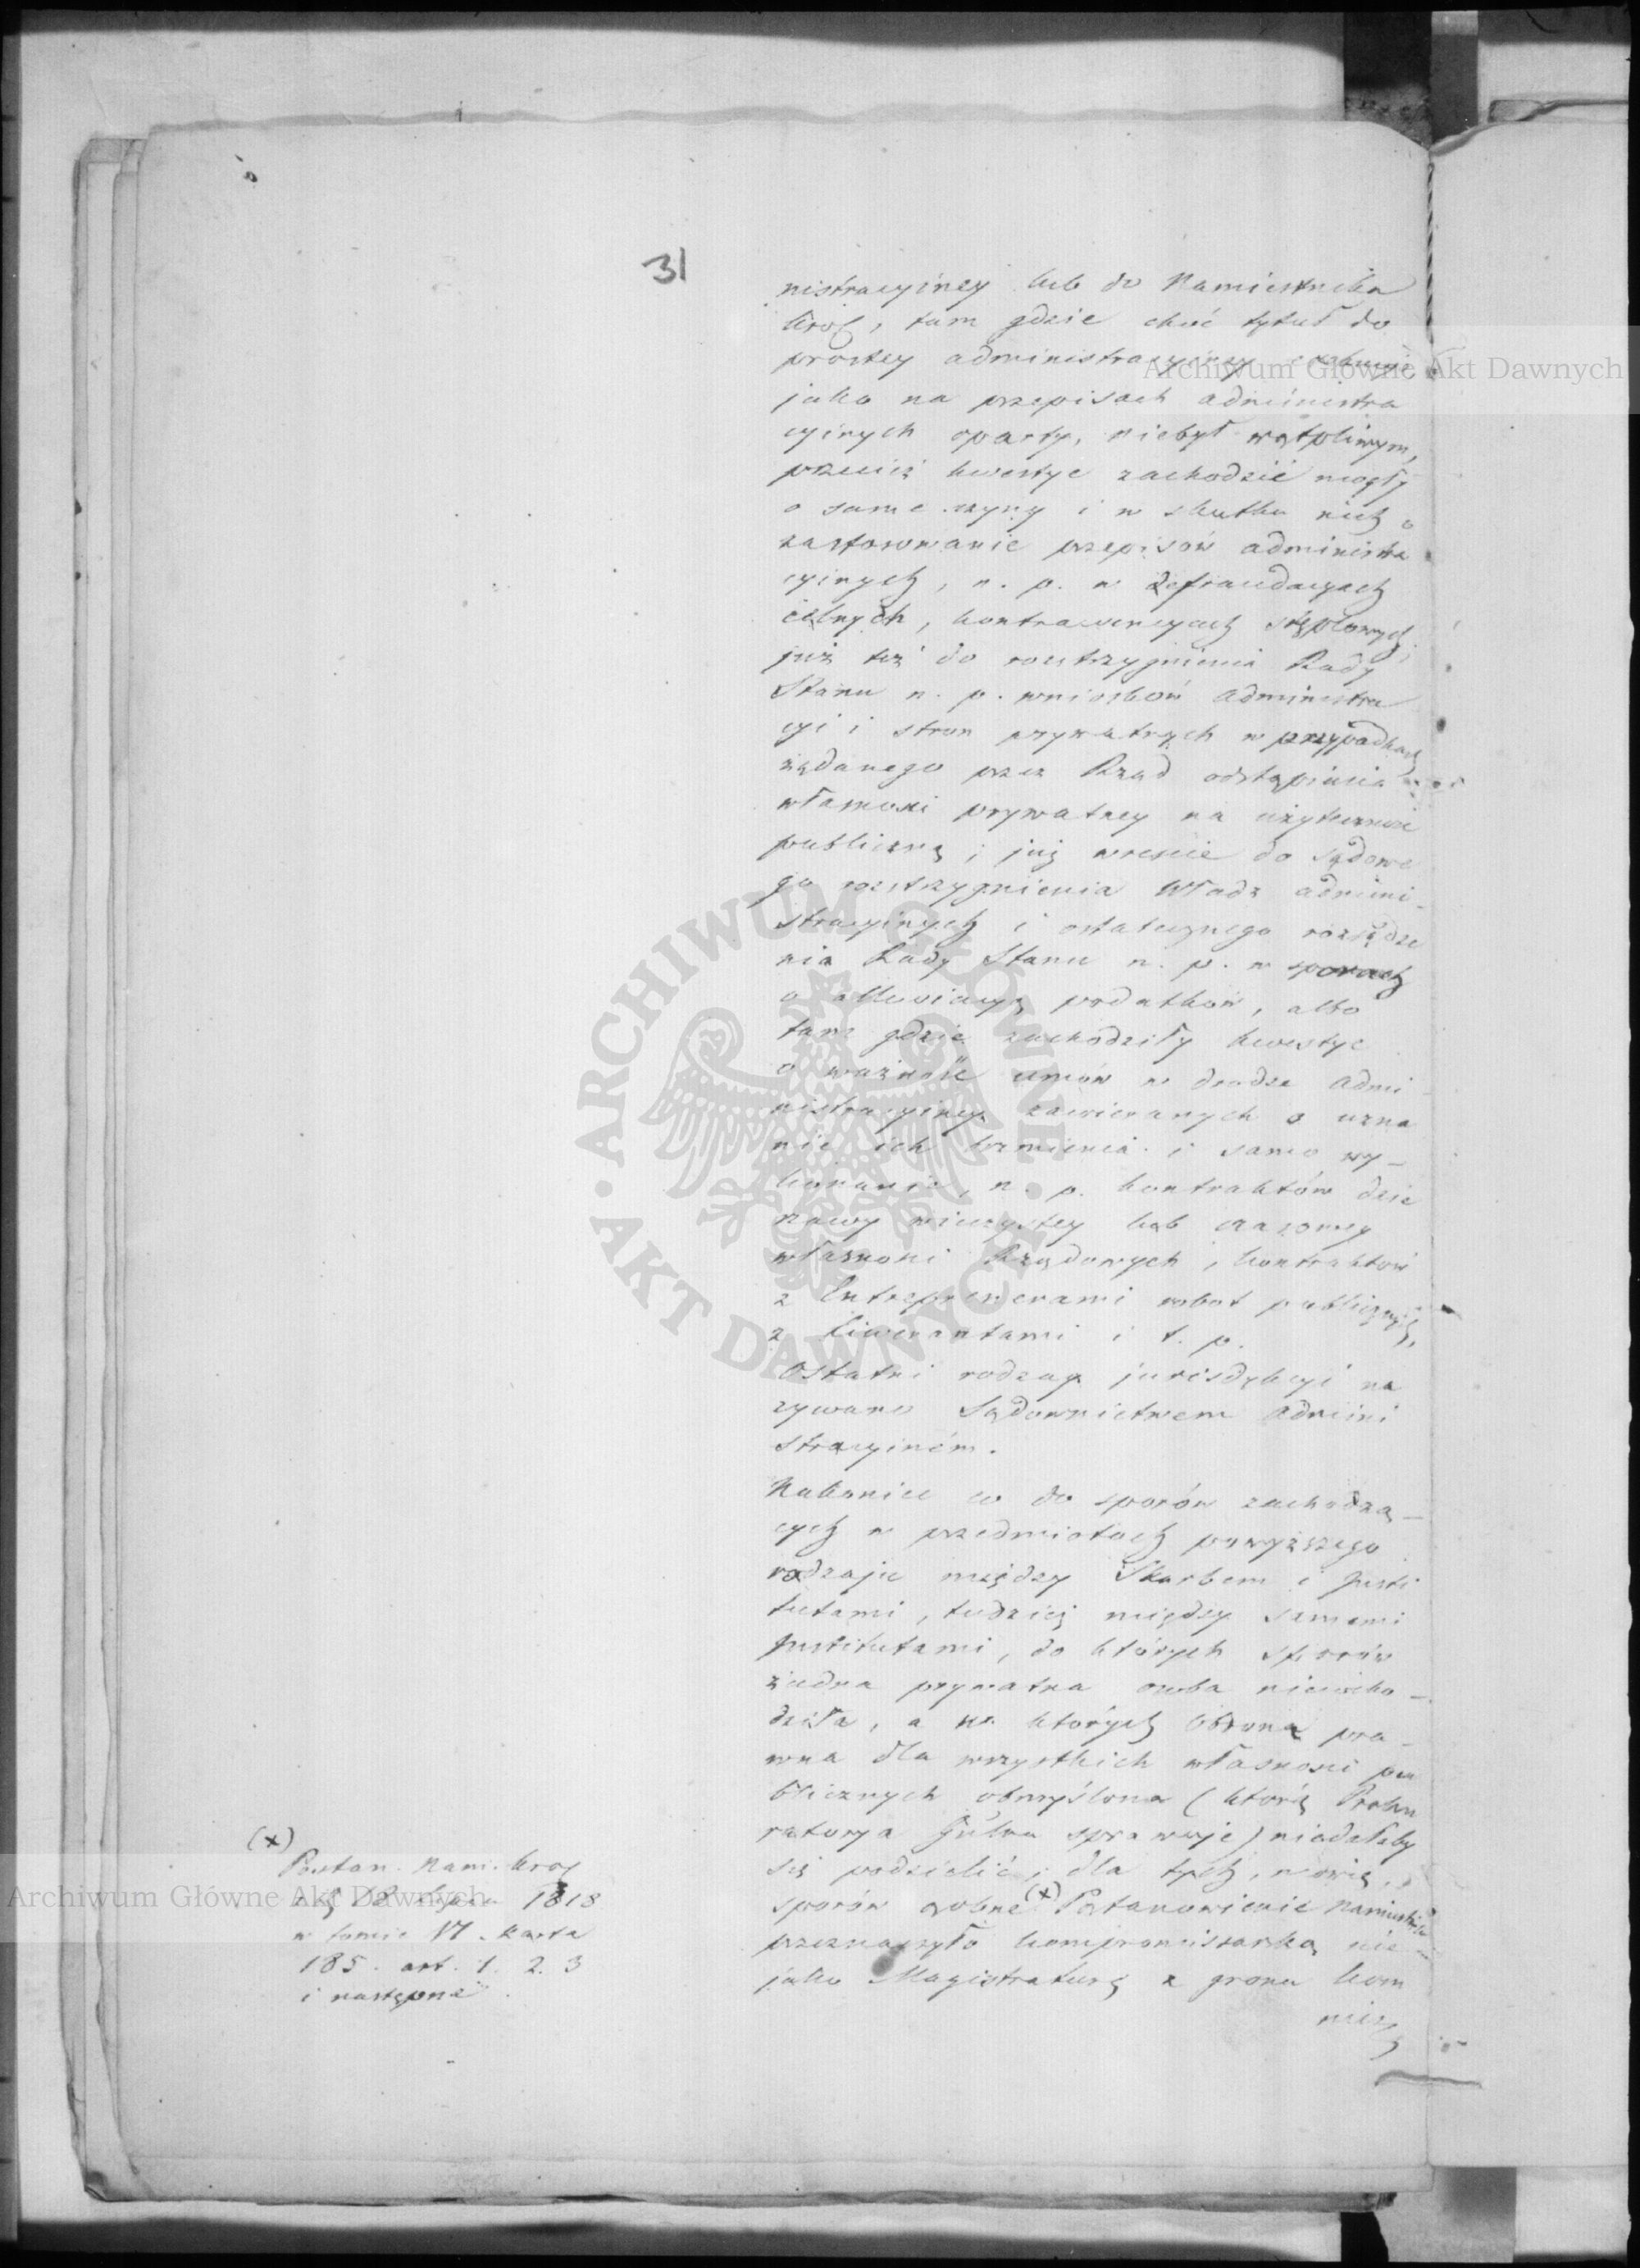 31
nistracyiney lub do Namiestnika
Król, tam gdzie choć tytuł do
prostey administracyiney
jako na przepisach administra
cyinych oparty, niebył wątpliwym,
przecież kwestye zachodzić mogły
o same czyny i w skutku nich o
zastosowanie przepisów administra
cyinych, n. p. w defraudacyach
celnych, kontrawencyach stęplowych;
już też do rozstrzygnienia Rady
Stanu n. p. wniosków administra
cyi i stron prywatnych w przypadkach
żądanego przez Rząd odstąpienia
własności prywatney na użyteczność
publiczną; już wreście do sądowe
go rozstrzygnienia Władz admini-
stracyinych i ostatecznego rozsądze
nia Rady Stanu n. p. w sporach
o podatków, albo
tam gdzie zachodziły kwestye
o ważność umów w drodze admi
nistracyiney zawieranych o uzna
nie ich brzmienia i samo wy-
konanie, n. p. kontraktów dzie
rzawy wieczystey lub czasowey
własności Rządowych, kontraktów
z Entreprenerami robot publicznych,
z Liwerantami i t. p.
Ostatni rodzay jurisdykcyi na
zywano Sądownictwem admini
stracyiném.
Nakoniec co do sporów zachodzą-
cych w przedmiotach powyższego
rodzaju między Skarbem i Insti
tutami, tudzież między samemi
Institutami, do których sporów
żadna prywatna osoba niewcho-
dziła, a w których obrona pra-
wna dla wszystkich własności pu
blicznych obmyślona (którą Proku
ratorya Gńlna sprawuje) niedałaby
się podzielić; dla tych, mówię,
sporów osobne (x) Postanowienie Namiestnika
przeznaczyło kompromissarską nie
jako Magistraturę z grona Kom
miss
(x)
Postan. Nam. Król
1818
w tomie VI. karta
185. art. 1. 2. 3
i następne.
Archiwum Główne Akt Dawnych
Archiwum Główne Akt Dawnych
ARCHIWUM GŁÓWNE · AKT DAWNYCH ·